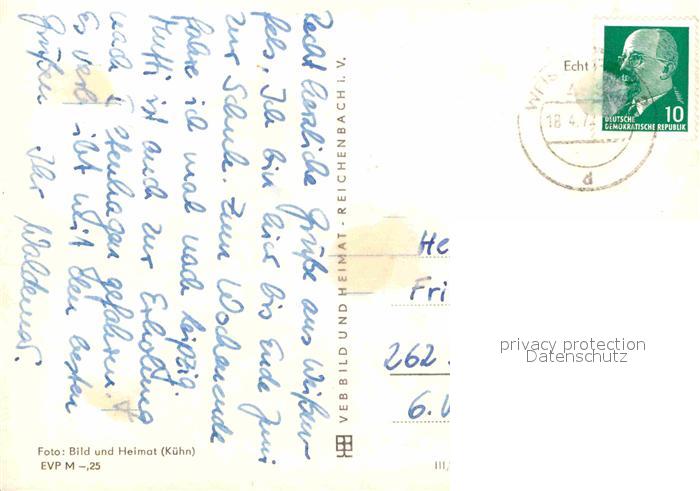 Recht herzliche Grüße aus Weißen-
fels. Ich bin hier bis Ende Juni
zur Schule. Zum Wochenende
fahre ich mal nach Leipzig.
Mutti ist auch zur Erholung
nach Stenhagen gefahren.
Es verbleibt mit den besten
Grüßen Ihr Waldemar.
VEB BILD UND HEIMAT - REICHENBACH I. V.
Foto: Bild und Heimat (Kühn)
EVP M –,25
III/
Echt
18.4.7
d
10
DEUTSCHE
DEMOKRATISCHE REPUBLIK
He
Fri
262
6.
privacy protection
Datenschutz